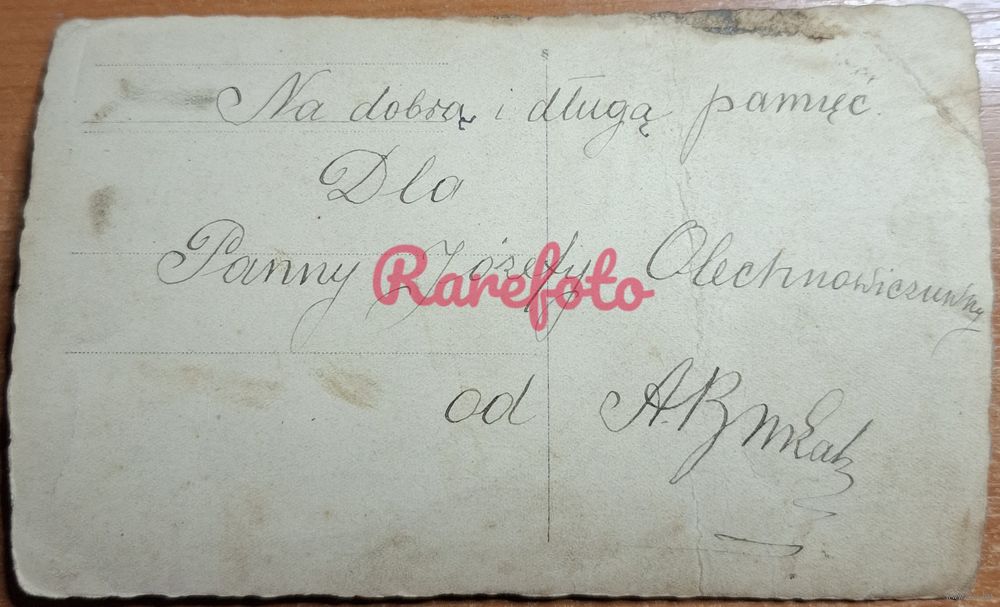 Na dobrą i długą pamięć.
Dla
Panny Józefy Olechnowiczuwny
Rarefoto
od A.